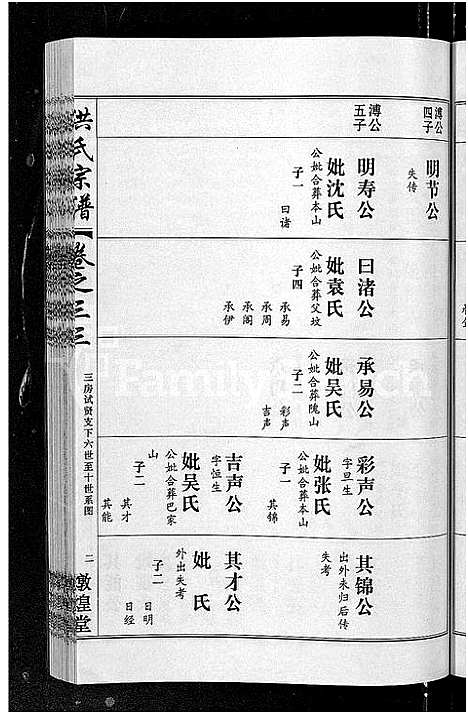 溥公
四子
明节公
失传
溥公
五子
明寿公
妣沈氏
公妣合葬本山
子一
曰诸
曰渚公
妣袁氏
公妣合葬父坟
子四
承易
承周
承阁
承伊
承易公
妣吴氏
公妣合葬隗山
子二
彩声
吉声
彩声公
字旦生
妣张氏
公妣合葬本山
子一
其锦
吉声公
字恒生
妣吴氏
公妣合葬巴家
山
子二
其才
其能
其锦公
出外未归后传
失考
其才公
妣 氏
外出失考
子二
日明
日经
洪氏宗谱
卷之三三
三房试贤支下六世至十世系图
二
敦煌堂
FamilySearch